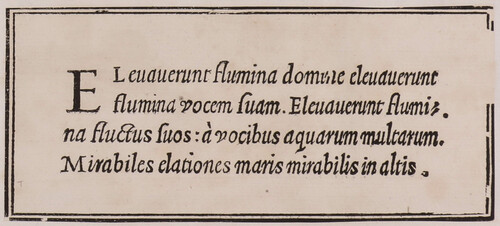 ELeuauerunt flumina domine eleuauerunt
flumina vocem suam. Eleuauerunt flumi-
na fluctus suos: à vocibus aquarum multarum.
Mirabiles elationes maris mirabilis in altis.